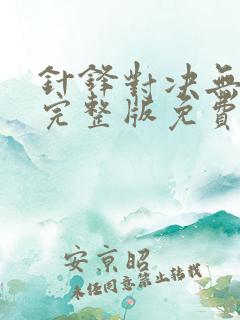 針鋒對決無
完整版免費
安京昭
未經同意禁止轉載